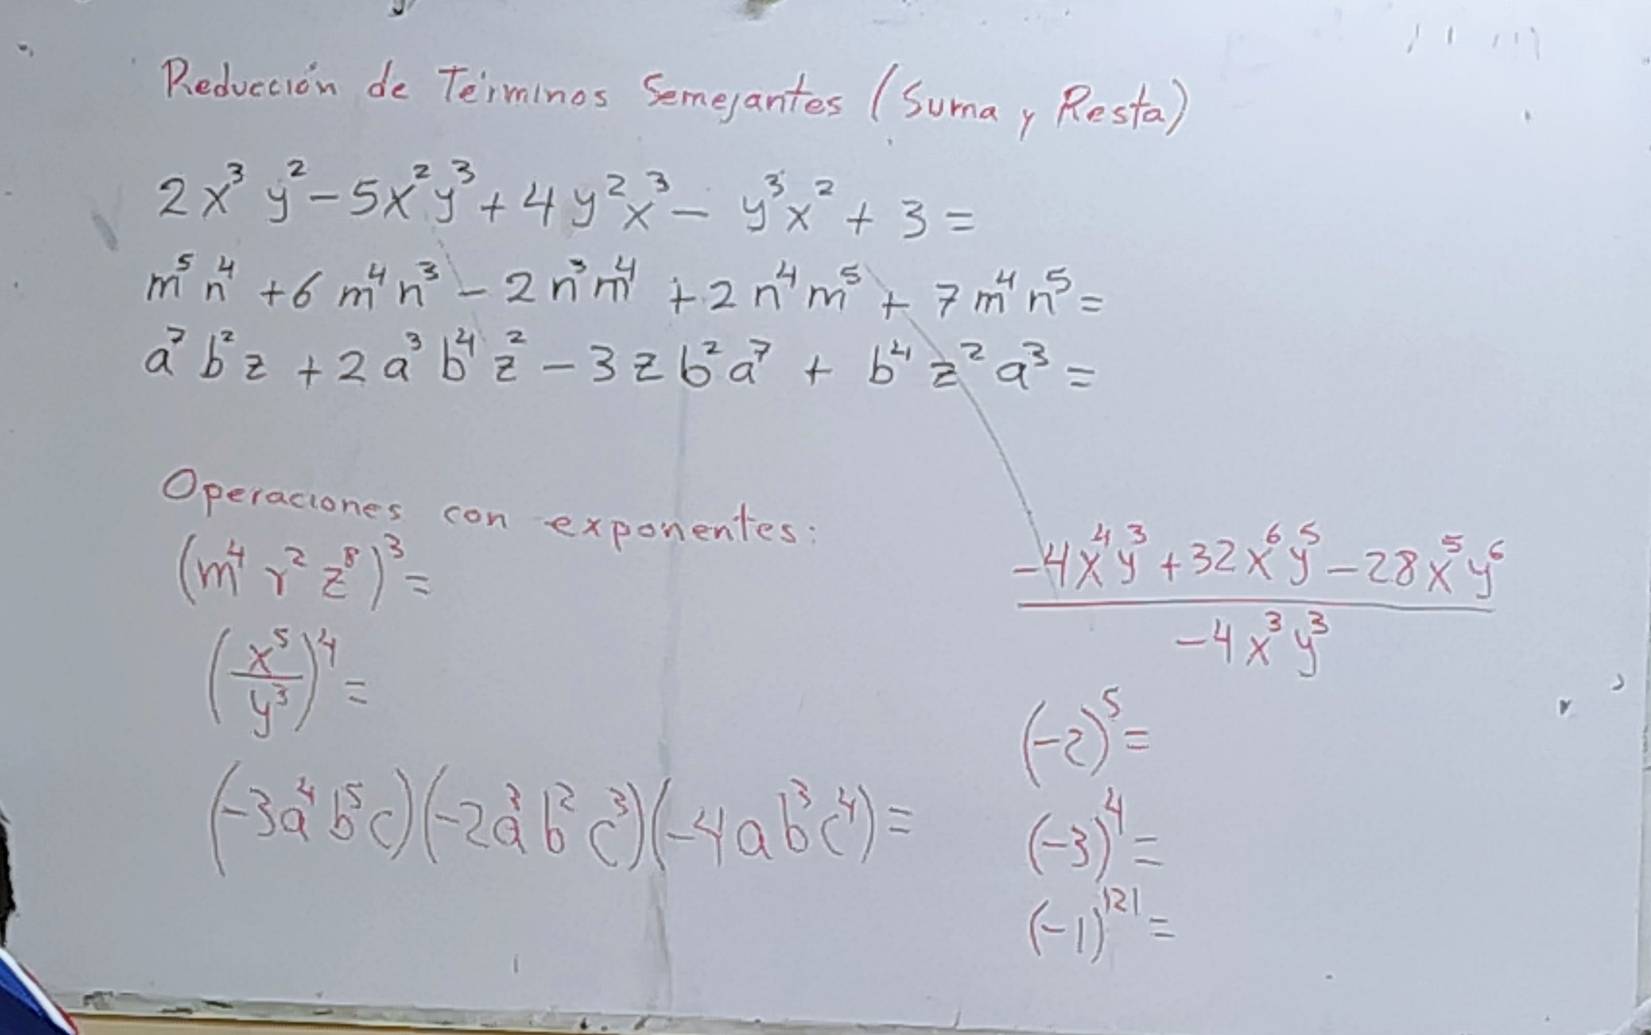 Reducción de Términos Semejantes (Suma y Resta)
2x³y² - 5x²y³ + 4y²x³ - y³x² + 3 =
m⁵n⁴ + 6m⁴n³ - 2n³m⁴ + 2n⁴m⁵ + 7m⁴n⁵ =
a⁷b²z + 2a³b⁴z² - 3zb²a⁷ + b⁴z²a³ =
Operaciones con exponentes:
(m⁴r²z⁸)³ =
(x⁵/y³)⁴ =
(-3a⁴b⁵c)(-2a³b²c³)(-4ab³c⁴) =
-4x⁴y³ + 32x⁶y⁵ - 28x⁵y⁶
-4x³y³
(-2)⁵ =
(-3)⁴ =
(-1)¹²¹ =